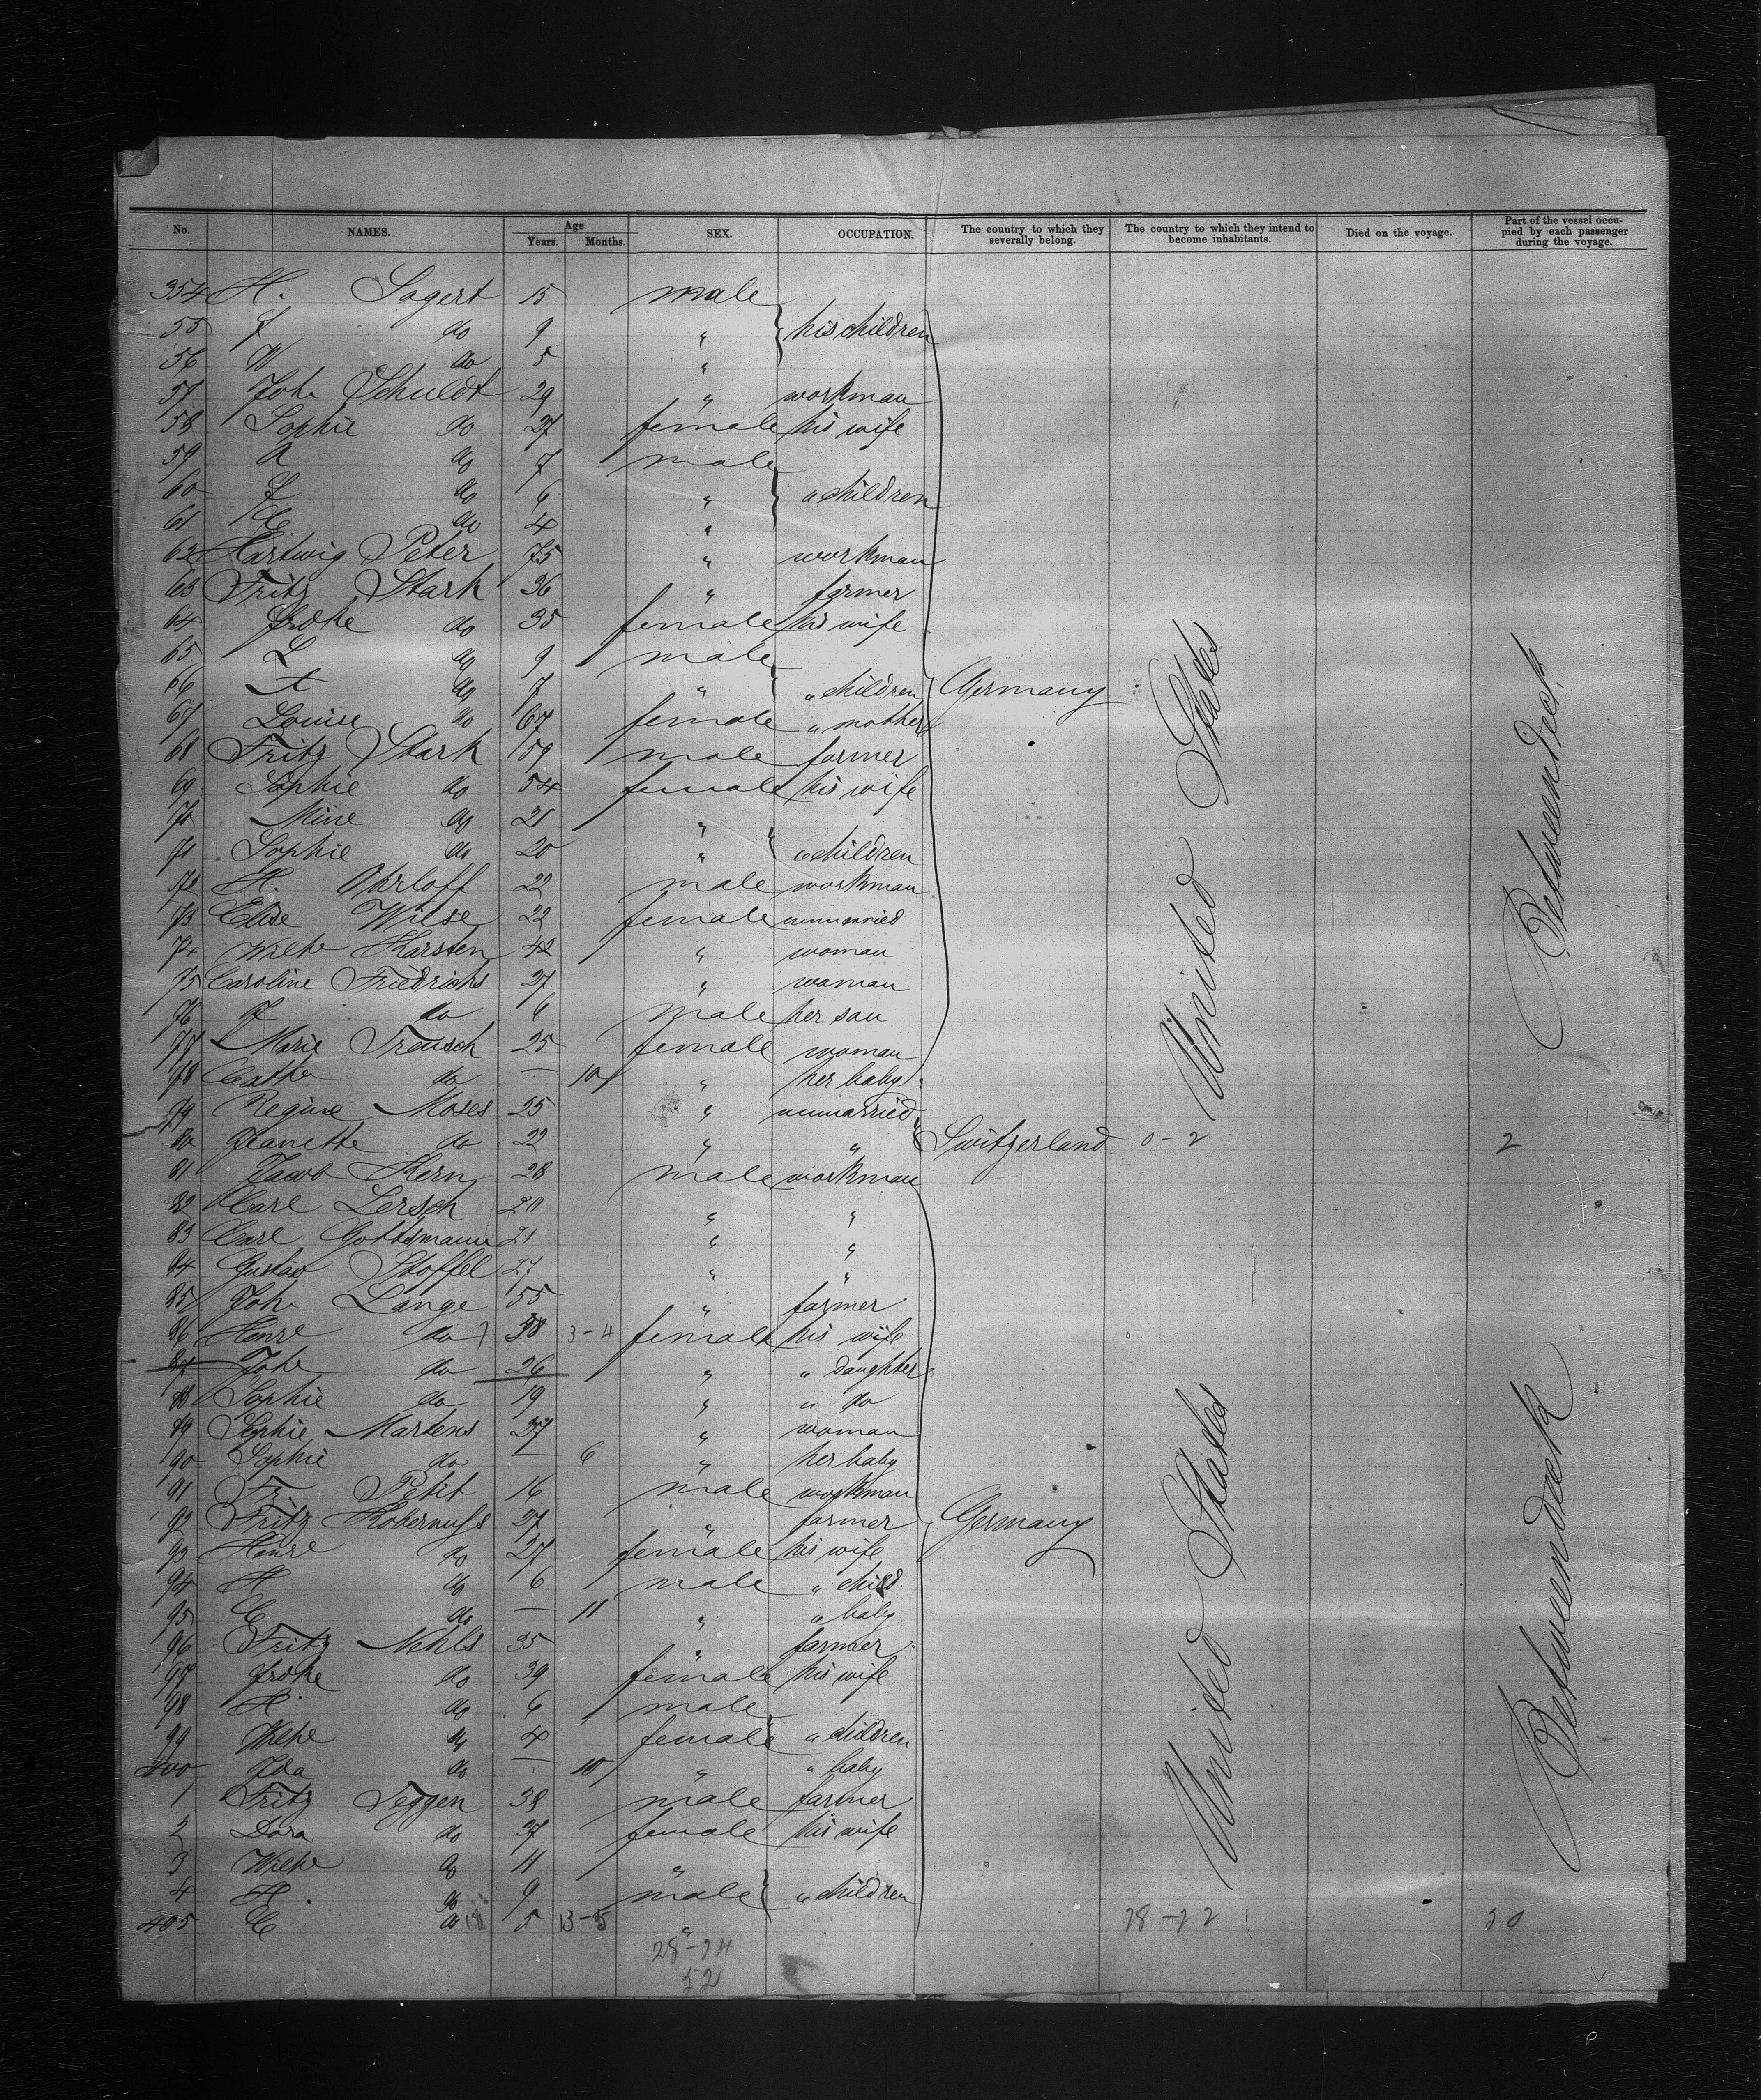 No. NAMES. Age Years. Months. SEX. OCCUPATION. The country to which they severally belong. The country to which they intend to become inhabitants. Died on the voyage. Part of the vessel occupied by each passenger during the voyage.
354 H. Sagert 15 male
55 f do 9 " } his children
56 W do 5 "
57 Joh. Schuldt 29 " workman
58 Sophie do 27 female his wife
59 A do 7 male
60 f do 6 " } " children
61 C do 4 "
62 Hartwig Peter 75 " workman
63 Fritz Stark 36 " farmer
64 frdke do 35 female his wife
65 L do 9 male
66 A do 7 " " children Germany
67 Louise do 67 female " mother
68 Fritz Stark 59 male farmer
69 Sophie do 54 female his wife
70 Mine do 21 "
71 Sophie do 20 " " children
72 H. Ohrloff 22 male workman
73 Elise Wilse 22 female unmarried
74 Wilhe Karsten 42 " woman
75 Caroline Friedrichs 27 " woman
76 f do 6 male her son
77 Marie Treusch 25 female woman
78 Cathe do — 10 " her baby
79 Regine Moses 25 " unmarried
80 Jeanette do 22 " " Switzerland 0-2 2
81 Jacob Kern 28 male workman
82 Carl Lersch 20 " "
83 Carl Gottsmann 21 " "
84 Gustav Stoffel 27 " "
85 Joh. Lange 55 " farmer
86 Henre do 58 3-4 female his wife
87 Johe do 26 " " daughter
88 Sophie do 19 " " do
89 Sophie Martens 27 " woman
90 Sophie do — 6 " her baby
91 Fr. Petit 16 male workman
92 Fritz Kobernuss 27 " farmer Germany
93 Henre do 27 female his wife
94 H do 6 male " child
95 C do — 11 " " baby
96 Fritz Nehls 35 " farmer
97 frdke do 39 female his wife
98 H. do 6 male
99 Wilhe do 4 female " children
400 Ida do — 10 " " baby
1 Fritz Teggen 38 male farmer
2 Dora do 37 female his wife
3 Wilhe do 11 "
4 H. do 9 male } " children
405 C do 18 5 13-5 " 28-22 50
28-24
52
United States
United States
Betweendeck
Betweendeck